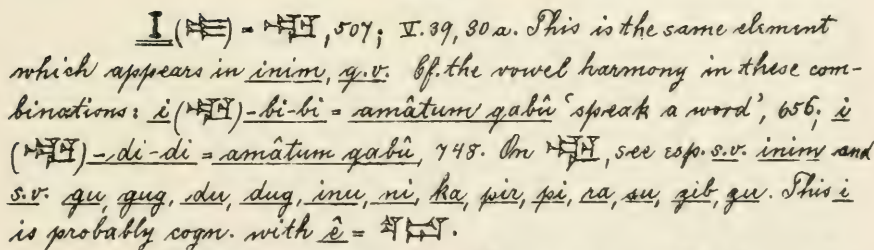 I (𒉿) = 𒅗, 507; V. 39, 30 a. This is the same element
which appears in inim, q.v. Cf. the vowel harmony in these com-
binations: i (𒅗)-bi-bi = amâtum qabû 'speak a word', 656; i
(𒅗)-di-di = amâtum qabû, 748. On 𒅗, see esp. s.v. inim and
s.v. gu, gug, du, dug, inu, ni, ka, pir, pi, ra, su, zib, zu. This i
is probably cogn. with ê =